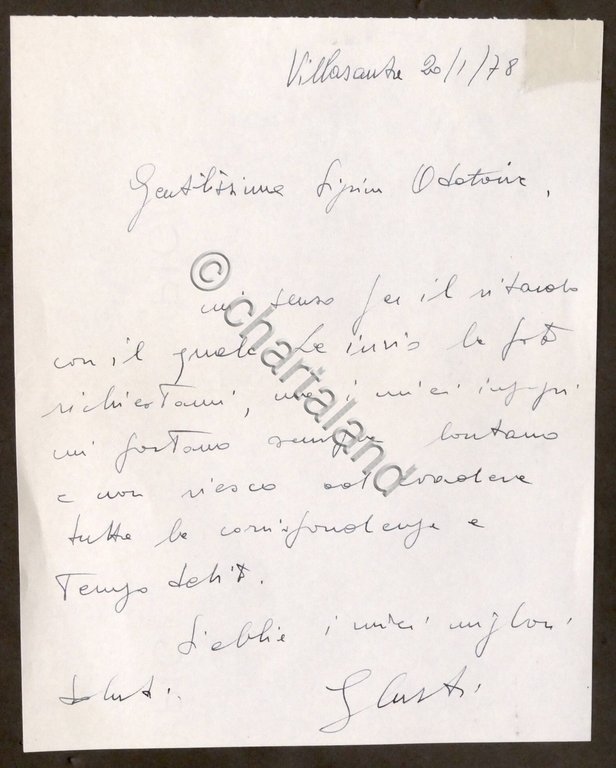 Villasanta 20/1/78
Gentilissima Signora
mi scuso per il ritardo
con il quale Le invio le foto
richiestami, ma i miei impegni
mi portano sempre lontano
e non riesco ad evadere
tutta la corrispondenza a
tempo debito.
Si abbia i miei migliori
saluti.
© chartaland